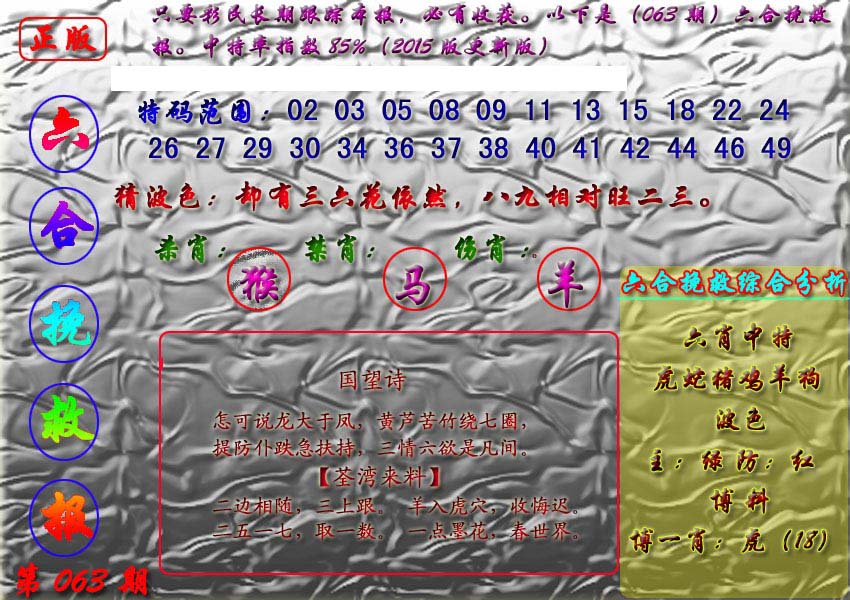 只要彩民长期跟踪本报，必有收获。以下是（063期）六合挽救
报。中特率指数85%（2015版更新版）
正版
六合挽救报
第063期
特码范围：02 03 05 08 09 11 13 15 18 22 24
26 27 29 30 34 36 37 38 40 41 42 44 46 49
猜波色：却有三六花依然，八九相对旺二三。
杀肖：猴 禁肖：马 伤肖：羊
国望诗
怎可说龙大于凤，黄芦苦竹绕七圈，
提防仆跌急扶持，三情六欲是凡间。
【荃湾来料】
二边相随，三上跟。 羊入虎穴，收悔迟。
二五一七，取一数。 一点墨花，春世界。
六合挽救综合分析
六肖中特
虎蛇猪鸡羊狗
波色
主：绿防：红
博料
博一肖：虎（18）